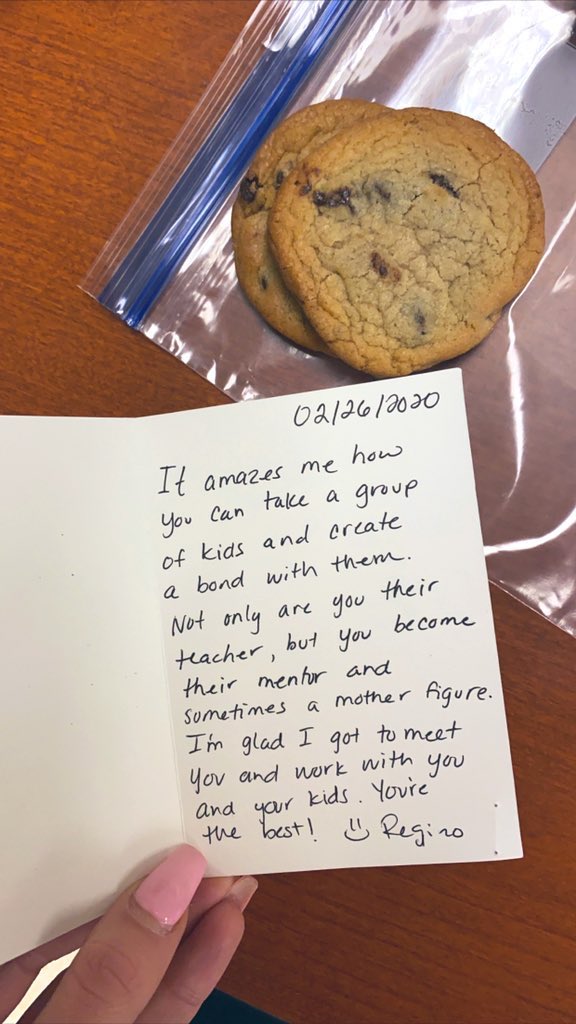 02/26/2020
It amazes me how
you can take a group
of kids and create
a bond with them.
Not only are you their
teacher, but you become
their mentor and
sometimes a mother figure.
I'm glad I got to meet
you and work with you
and your kids. You're
the best! Regino